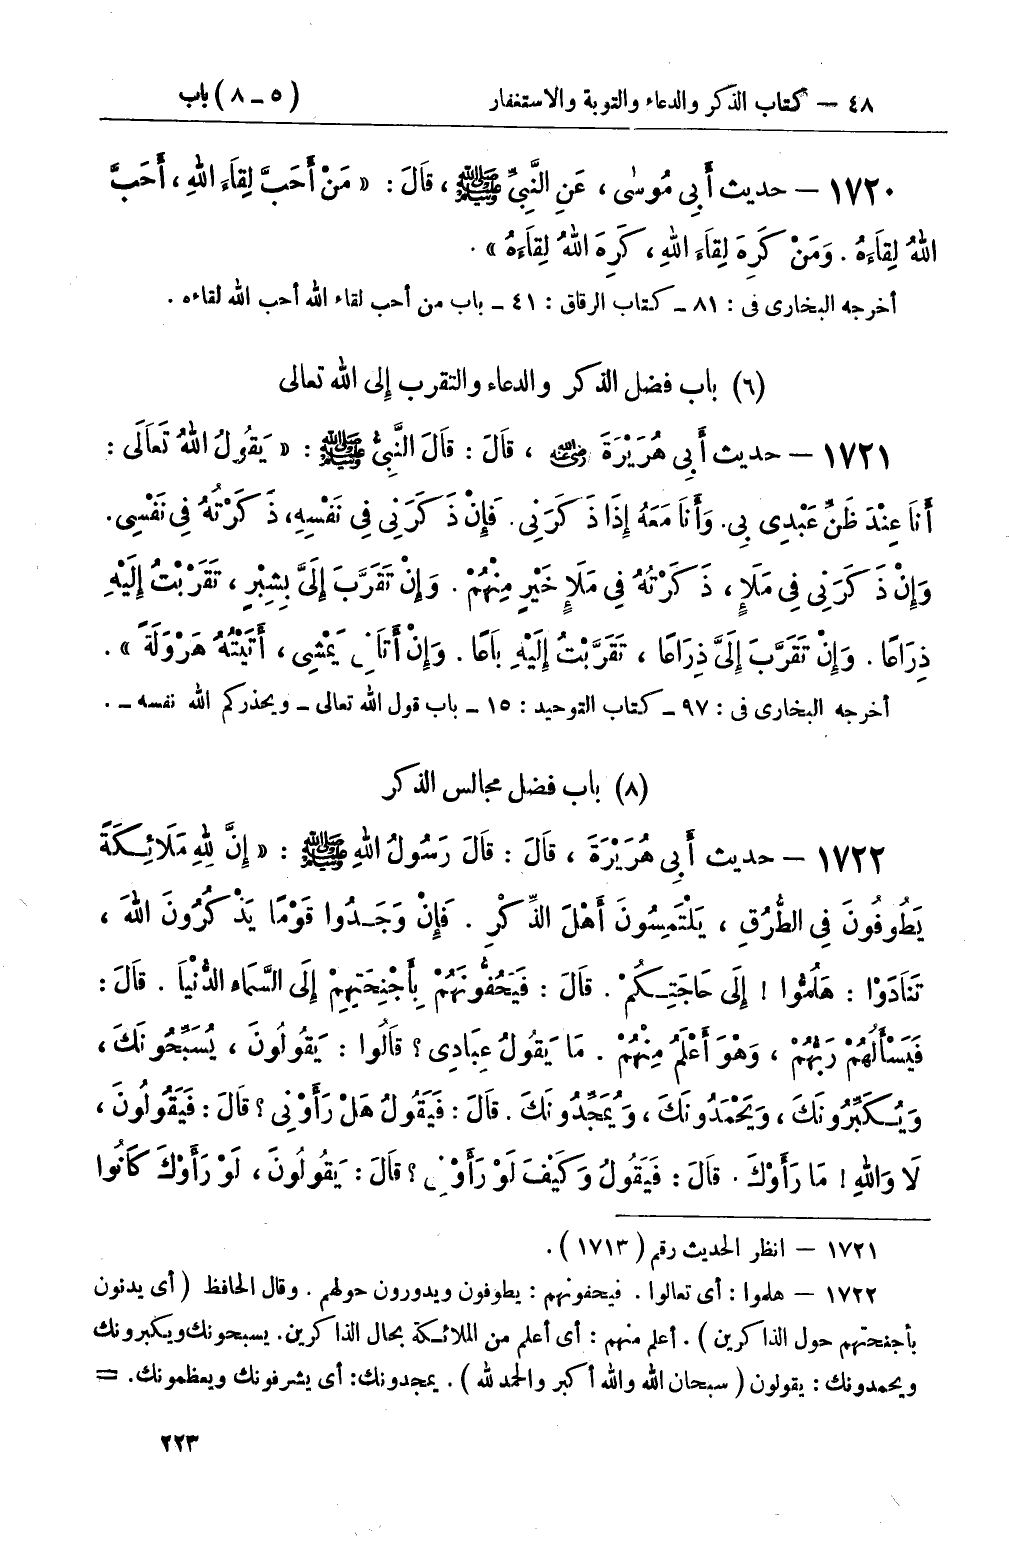 ٤٨ — كتاب الذكر والدعاء والتوبة والاستغفار (٥ ـ ٨) باب
١٧٢٠ — حديث أَبِي مُوسٰى ، عَنِ النَّبِيِّ ﷺ ، قَالَ : « مَنْ أَحَبَّ لِقَاءَ اللهِ ، أَحَبَّ
اللهُ لِقَاءَهُ . وَمَنْ كَرِهَ لِقَاءَ اللهِ ، كَرِهَ اللهُ لِقَاءَهُ » .
أخرجه البخارى فى : ٨١ ـ كتاب الرقاق : ٤١ ـ باب من أحب لقاء الله أحب الله لقاءه .
(٦) باب فضل الذكر والدعاء والتقرب إلى الله تعالى
١٧٢١ — حديث أَبِي هُرَيْرَةَ رضي الله عنه ، قَالَ : قَالَ النَّبِيُّ ﷺ : « يَقُولُ اللهُ تَعَالَى :
أَنَا عِنْدَ ظَنِّ عَبْدِى بِى. وَأَنَا مَعَهُ إِذَا ذَكَرَنِى . فَإِنْ ذَكَرَنِى فِى نَفْسِهِ، ذَكَرْتُهُ فِى نَفْسِى.
وَإِنْ ذَكَرَنِى فِى مَلَإٍ ، ذَكَرْتُهُ فِى مَلَإٍ خَيْرٍ مِنْهُمْ . وَإِنْ تَقَرَّبَ إِلَىَّ بِشِبْرٍ ، تَقَرَّبْتُ إِلَيْهِ
ذِرَاعًا . وَإِنْ تَقَرَّبَ إِلَىَّ ذِرَاعًا ، تَقَرَّبْتُ إِلَيْهِ بَاعًا . وَإِنْ أَتَانِى يَمْشِى ، أَتَيْتُهُ هَرْوَلَةً » .
أخرجه البخارى فى : ٩٧ ـ كتاب التوحيد : ١٥ ـ باب قول الله تعالى ـ ويحذركم الله نفسه ـ .
(٨) باب فضل مجالس الذكر
١٧٢٢ — حديث أَبِى هُرَيْرَةَ ، قَالَ : قَالَ رَسُولُ اللهِ ﷺ : « إِنَّ لِلّٰهِ مَلَائِكَةً
يَطُوفُونَ فِى الطُّرُقِ ، يَلْتَمِسُونَ أَهْلَ الذِّكْرِ . فَإِنْ وَجَدُوا قَوْمًا يَذْكُرُونَ اللهَ ،
تَنَادَوْا : هَلُمُّوا ! إِلَى حَاجَتِكُمْ . قَالَ : فَيَحُفُّونَهُمْ بِأَجْنِحَتِهِمْ إِلَى السَّمَاءِ الدُّنْيَا . قَالَ :
فَيَسْأَلُهُمْ رَبُّهُمْ ، وَهْوَ أَعْلَمُ مِنْهُمْ . مَا يَقُولُ عِبَادِى ؟ قَالُوا : يَقُولُونَ ، يُسَبِّحُونَكَ ،
وَيُكَبِّرُونَكَ ، وَيَحْمَدُونَكَ ، وَيُمَجِّدُونَكَ . قَالَ : فَيَقُولُ هَلْ رَأَوْنِى ؟ قَالَ : فَيَقُولُونَ ،
لَا وَاللهِ ! مَا رَأَوْكَ . قَالَ : فَيَقُولُ وَكَيْفَ لَوْ رَأَوْنِى ؟ قَالَ : يَقُولُونَ ، لَوْ رَأَوْكَ كَانُوا
١٧٢١ — انظر الحديث رقم ( ١٧١٣ ) .
١٧٢٢ — هلموا : أى تعالوا . فيحفونهم : يطوفون ويدورون حولهم . وقال الحافظ ( أى يدنون
بأجنحتهم حول الذاكرين ) . أعلم منهم : أى أعلم من الملائكة بحال الذاكرين. يسبحونك ويكبرونك
ويحمدونك : يقولون ( سبحان الله والله أكبر والحمد لله ) . يمجدونك: أى يشرفونك ويعظمونك. =
٢٢٣